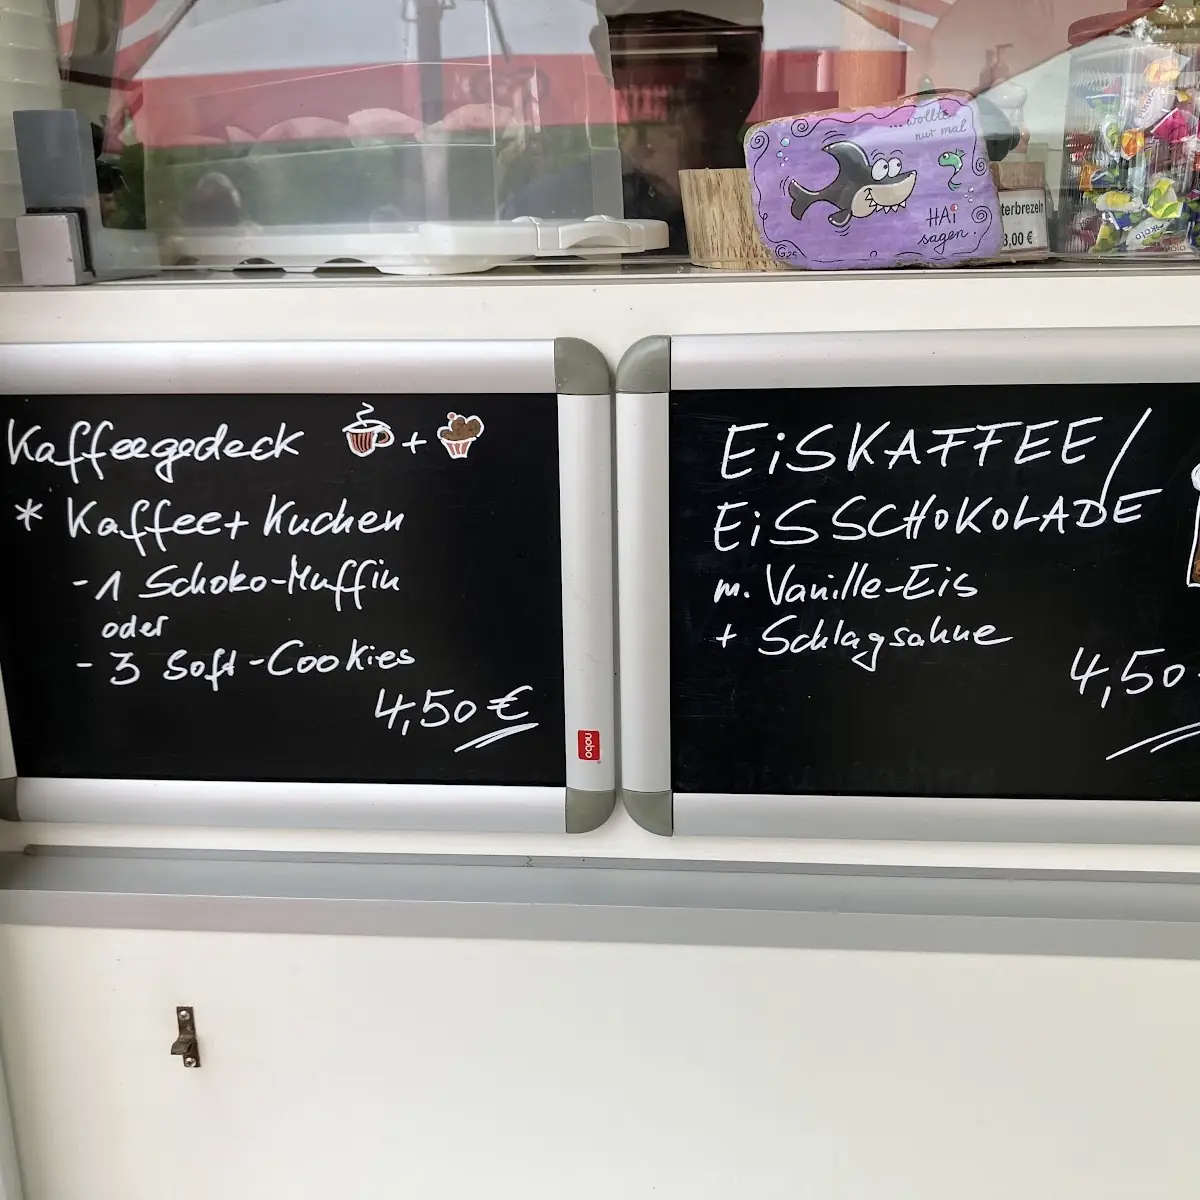 ... wollte
nur mal
HAi
sagen.
terbrezeln
3,00 €
Kaffeegedeck +
* Kaffee + Kuchen
- 1 Schoko-Muffin
oder
- 3 Soft-Cookies
4,50 €
nobo
EiSKAFFEE/
EiSSCHOKOLADE
m. Vanille-Eis
+ Schlagsahne
4,50